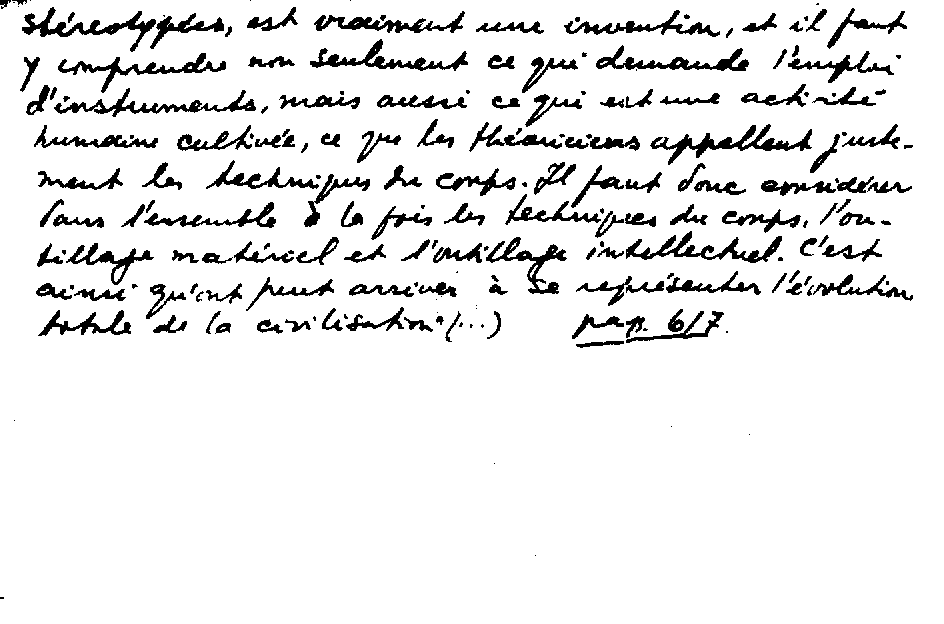 stéréotypées, est vraiment une invention, et il faut
y comprendre non seulement ce qui demande l'emploi
d'instruments, mais aussi ce qui est une activité
humaine cultivée, ce que les théoriciens appellent juste-
ment les techniques du corps. Il faut donc considérer
dans l'ensemble à la fois les techniques du corps, l'ou-
tillage matériel et l'outillage intellectuel. C'est
ainsi qu'ont peut arriver à se représenter l'évolution
totale de la civilisation" (...) pag. 6/7.